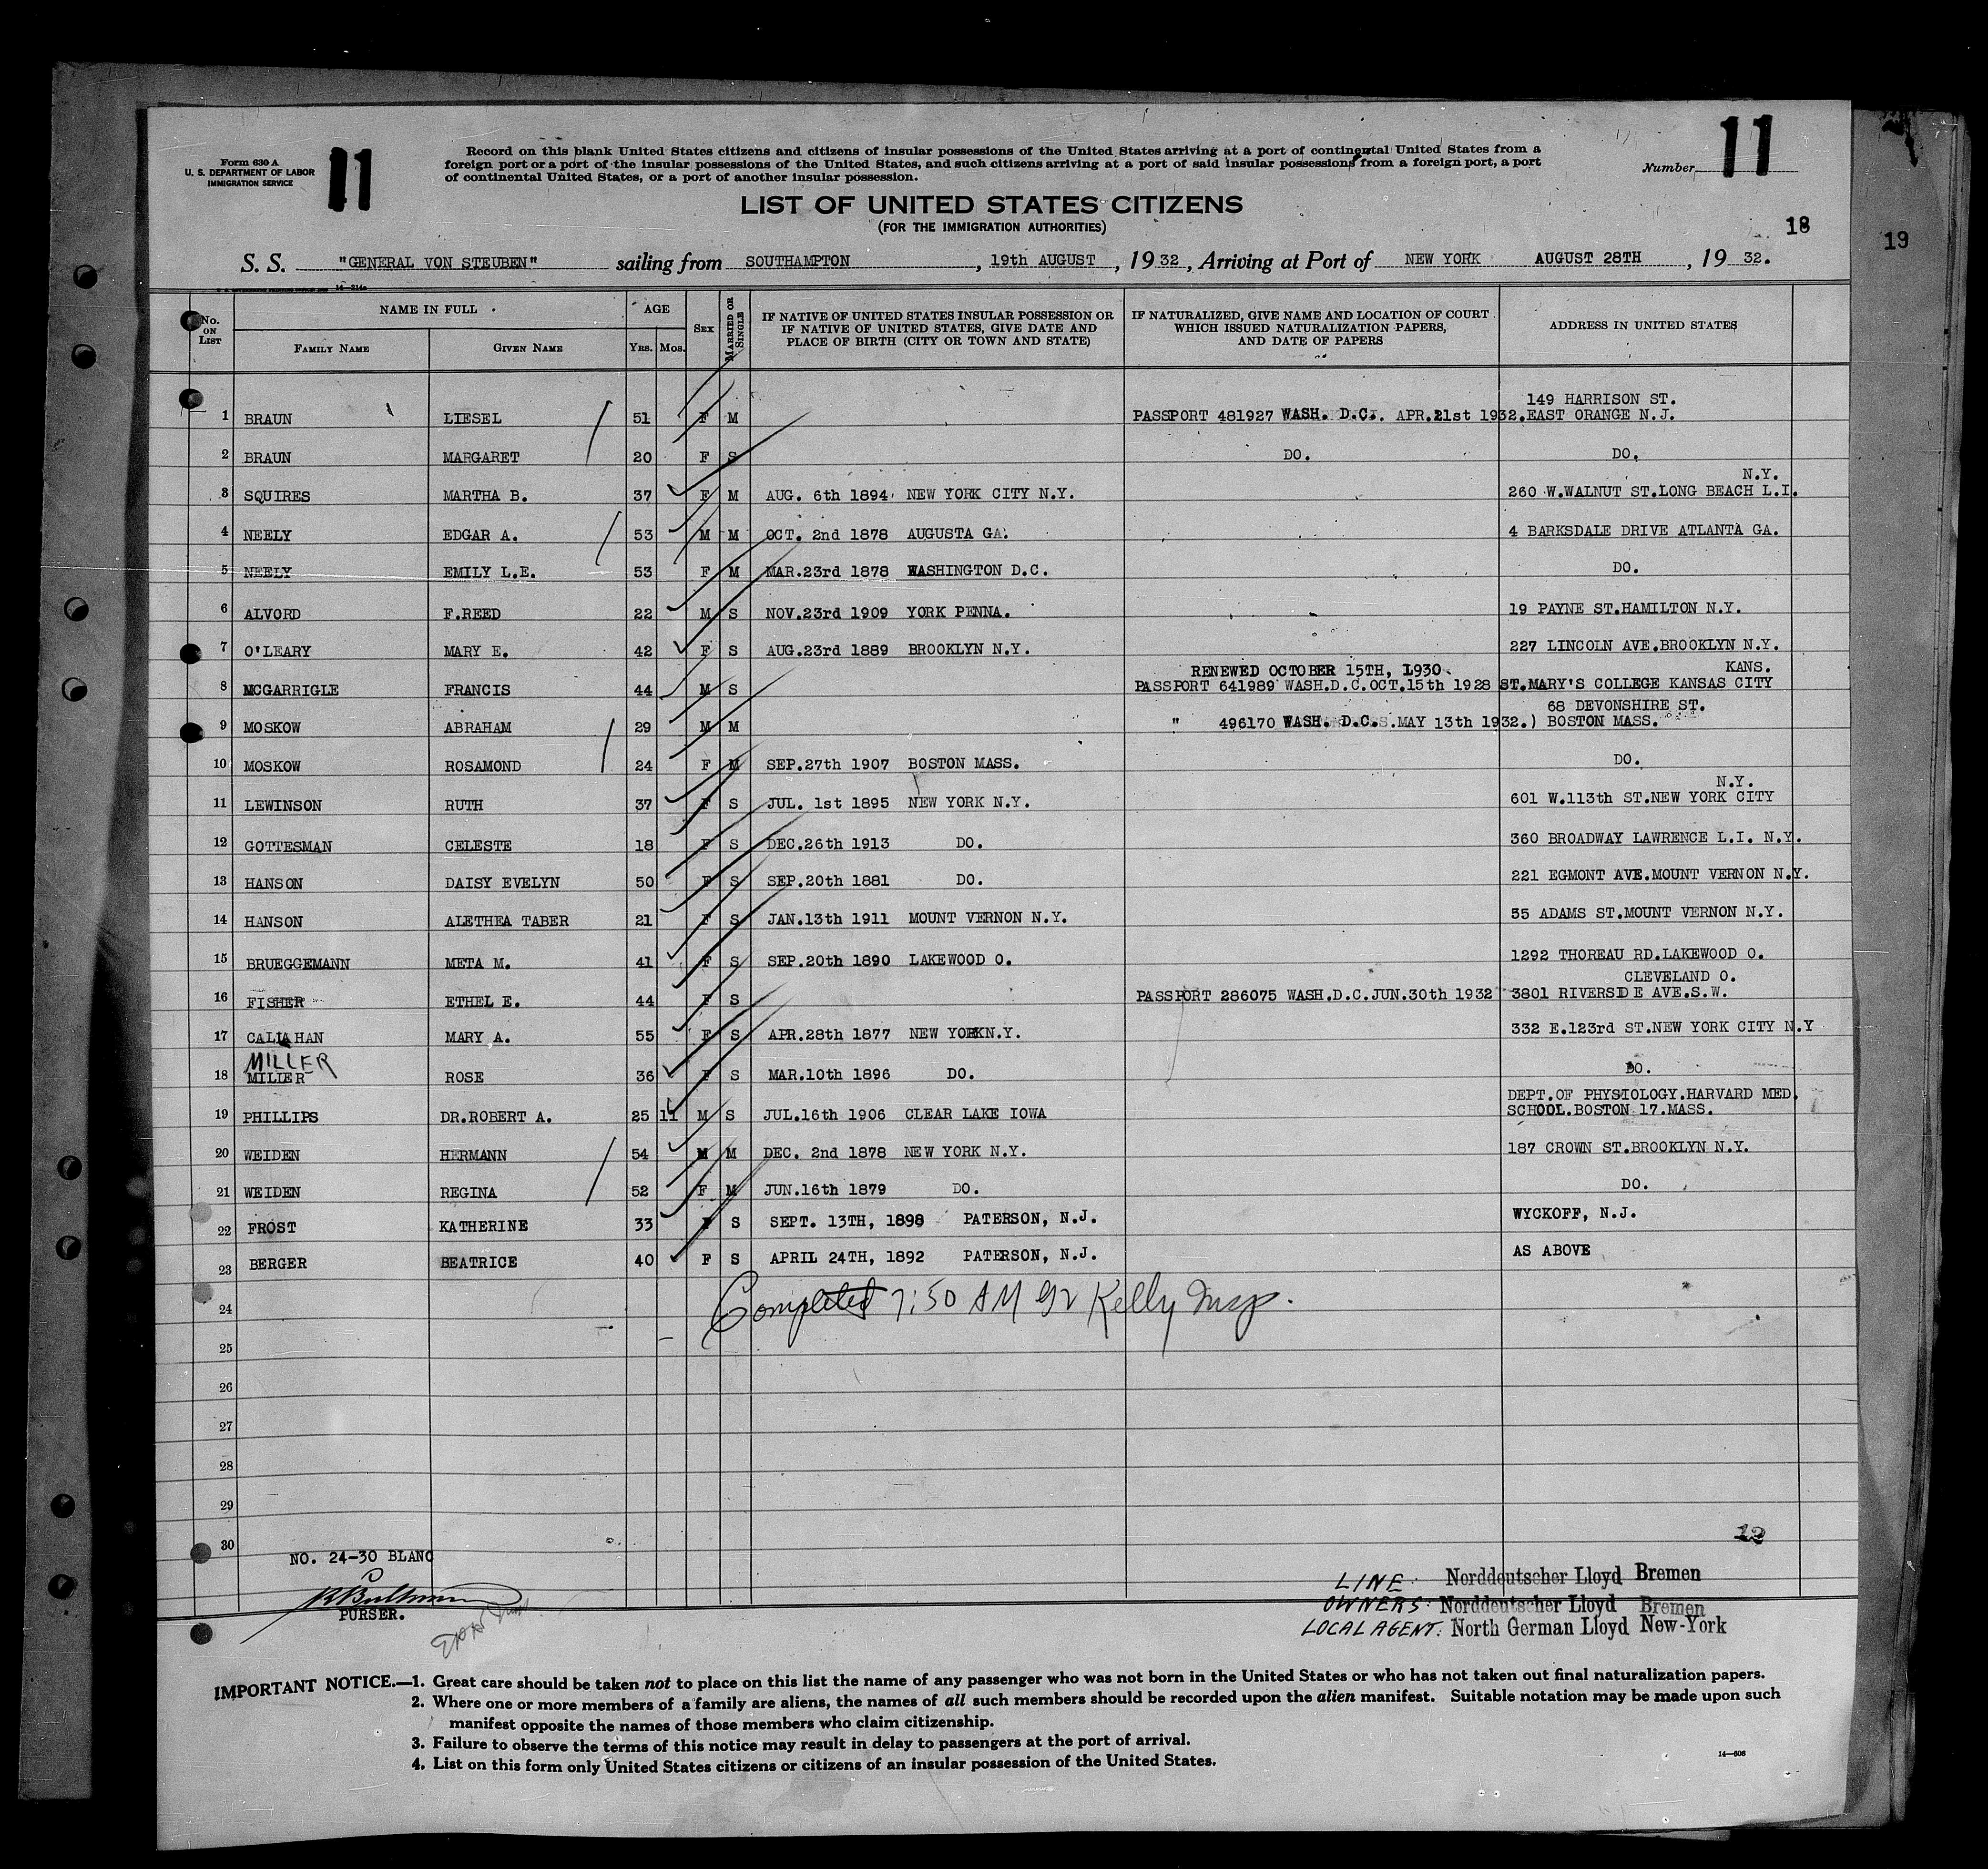 Form 630 A
U. S. DEPARTMENT OF LABOR
IMMIGRATION SERVICE
11
Record on this blank United States citizens and citizens of insular possessions of the United States arriving at a port of continental United States from a
foreign port or a port of the insular possessions of the United States, and such citizens arriving at a port of said insular possessions from a foreign port, a port
of continental United States, or a port of another insular possession.
Number 11
LIST OF UNITED STATES CITIZENS
(FOR THE IMMIGRATION AUTHORITIES)
18
19
S. S. "GENERAL VON STEUBEN" sailing from SOUTHAMPTON, 19th AUGUST, 1932, Arriving at Port of NEW YORK AUGUST 28TH, 1932.
No. ON LIST NAME IN FULL FAMILY NAME GIVEN NAME AGE YRS. MOS. SEX MARRIED OR SINGLE
IF NATIVE OF UNITED STATES INSULAR POSSESSION OR
IF NATIVE OF UNITED STATES, GIVE DATE AND
PLACE OF BIRTH (CITY OR TOWN AND STATE)
IF NATURALIZED, GIVE NAME AND LOCATION OF COURT
WHICH ISSUED NATURALIZATION PAPERS,
AND DATE OF PAPERS
ADDRESS IN UNITED STATES
149 HARRISON ST.
1 BRAUN LIESEL 51 F M PASSPORT 481927 WASH. D.C. APR.21st 1932. EAST ORANGE N.J.
2 BRAUN MARGARET 20 F S DO. DO.
N.Y.
3 SQUIRES MARTHA B. 37 F M AUG. 6th 1894 NEW YORK CITY N.Y. 260 W.WALNUT ST.LONG BEACH L.I.
4 NEELY EDGAR A. 53 M M OCT. 2nd 1878 AUGUSTA GA. 4 BARKSDALE DRIVE ATLANTA GA.
5 NEELY EMILY L.E. 53 F M MAR.23rd 1878 WASHINGTON D.C. DO.
6 ALVORD F.REED 22 M S NOV.23rd 1909 YORK PENNA. 19 PAYNE ST.HAMILTON N.Y.
7 O'LEARY MARY E. 42 F S AUG.23rd 1889 BROOKLYN N.Y. 227 LINCOLN AVE.BROOKLYN N.Y.
RENEWED OCTOBER 15TH, 1930 KANS.
8 MCGARRIGLE FRANCIS 44 M S PASSPORT 641989 WASH.D.C.OCT.15th 1928 ST.MARY'S COLLEGE KANSAS CITY
68 DEVONSHIRE ST.
9 MOSKOW ABRAHAM 29 M M " 496170 WASH. D.C. MAY 13th 1932.) BOSTON MASS.
10 MOSKOW ROSAMOND 24 F M SEP.27th 1907 BOSTON MASS. DO.
N.Y.
11 LEWINSON RUTH 37 F S JUL. 1st 1895 NEW YORK N.Y. 601 W.113th ST.NEW YORK CITY
12 GOTTESMAN CELESTE 18 F S DEC.26th 1913 DO. 360 BROADWAY LAWRENCE L.I. N.Y.
13 HANSON DAISY EVELYN 50 F S SEP.20th 1881 DO. 221 EGMONT AVE.MOUNT VERNON N.Y.
14 HANSON ALETHEA TABER 21 F S JAN.13th 1911 MOUNT VERNON N.Y. 55 ADAMS ST.MOUNT VERNON N.Y.
15 BRUEGGEMANN META M. 41 F S SEP.20th 1890 LAKEWOOD O. 1292 THOREAU RD.LAKEWOOD O.
CLEVELAND O.
16 FISHER ETHEL E. 44 F S PASSPORT 286075 WASH.D.C.JUN.30th 1932 3801 RIVERSIDE AVE.S.W.
17 CALLAHAN MARY A. 55 F S APR.28th 1877 NEW YORK N.Y. 332 E.123rd ST.NEW YORK CITY N.Y
MILLER
18 MILLER ROSE 36 F S MAR.10th 1896 DO. DO.
DEPT.OF PHYSIOLOGY.HARVARD MED.
19 PHILLIPS DR.ROBERT A. 25 11 M S JUL.16th 1906 CLEAR LAKE IOWA SCHOOL.BOSTON 17.MASS.
20 WEIDEN HERMANN 54 M M DEC. 2nd 1878 NEW YORK N.Y. 187 CROWN ST.BROOKLYN N.Y.
21 WEIDEN REGINA 52 F M JUN.16th 1879 DO. DO.
22 FROST KATHERINE 33 F S SEPT. 13TH, 1898 PATERSON, N.J. WYCKOFF, N.J.
23 BERGER BEATRICE 40 F S APRIL 24TH, 1892 PATERSON, N.J. AS ABOVE
24 Completed 7:50 AM Kelly Insp.
25
26
27
28
29
30
12
NO. 24-30 BLANC
PURSER.
LINE: Norddeutscher Lloyd Bremen
OWNERS: Norddeutscher Lloyd Bremen
LOCAL AGENT: North German Lloyd New-York
IMPORTANT NOTICE.—1. Great care should be taken not to place on this list the name of any passenger who was not born in the United States or who has not taken out final naturalization papers.
2. Where one or more members of a family are aliens, the names of all such members should be recorded upon the alien manifest. Suitable notation may be made upon such
manifest opposite the names of those members who claim citizenship.
3. Failure to observe the terms of this notice may result in delay to passengers at the port of arrival.
4. List on this form only United States citizens or citizens of an insular possession of the United States.
14—608